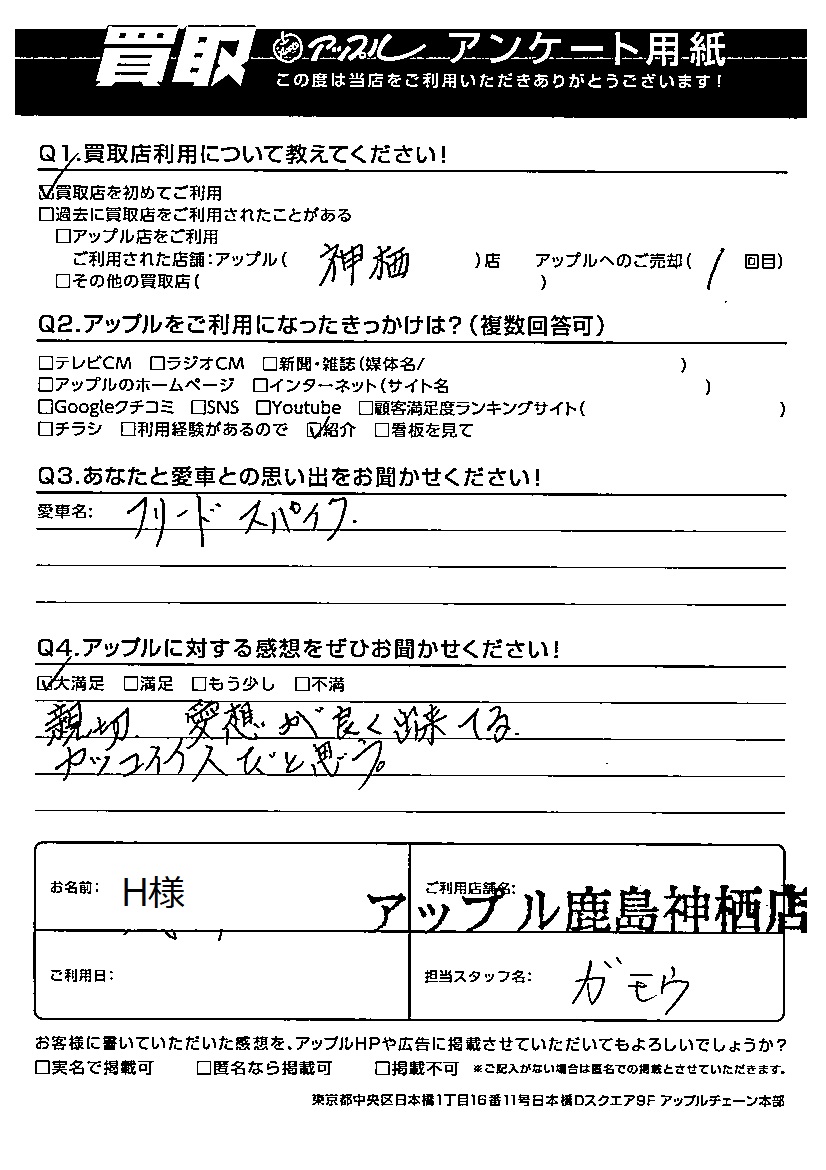 買取 アップル アンケート用紙
この度は当店をご利用いただきありがとうございます！
Q1.買取店利用について教えてください！
☑買取店を初めてご利用
□過去に買取店をご利用されたことがある
□アップル店をご利用
ご利用された店舗：アップル( 神栖 )店 アップルへのご売却( 1 回目)
□その他の買取店( )
Q2.アップルをご利用になったきっかけは？(複数回答可)
□テレビCM □ラジオCM □新聞・雑誌(媒体名/ )
□アップルのホームページ □インターネット(サイト名 )
□Googleクチコミ □SNS □Youtube □顧客満足度ランキングサイト( )
□チラシ □利用経験があるので ☑紹介 □看板を見て
Q3.あなたと愛車との思い出をお聞かせください！
愛車名: フリード スパイク.
Q4.アップルに対する感想をぜひお聞かせください！
☑大満足 □満足 □もう少し □不満
親切. 愛想が良く出来てる.
カッコイイ人だと思う。
お名前: H様
ご利用店舗名:
アップル鹿島神栖店
ご利用日:
担当スタッフ名: ガモウ
お客様に書いていただいた感想を、アップルHPや広告に掲載させていただいてもよろしいでしょうか？
□実名で掲載可 □匿名なら掲載可 □掲載不可 ※ご記入がない場合は匿名での掲載とさせていただきます。
東京都中央区日本橋1丁目16番11号日本橋Dスクエア9F アップルチェーン本部